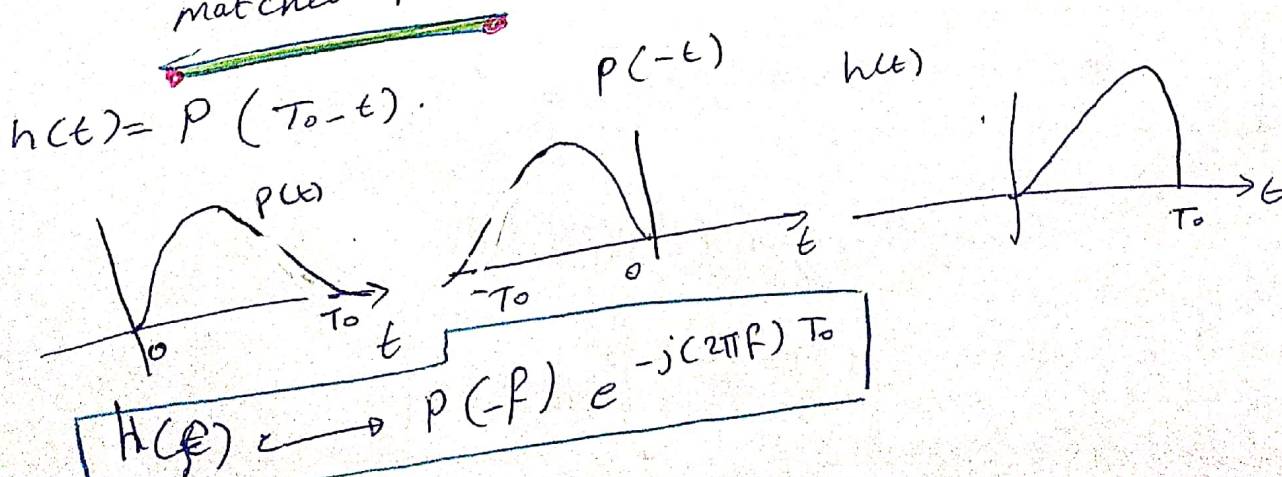 matche
p(-t)
h(t)
h(t) = P (T₀-t).
p(t)
0
T₀
t
-T₀
0
t
T₀
t
H(f) ⟷ P(-f) e^-j(2πf) T₀